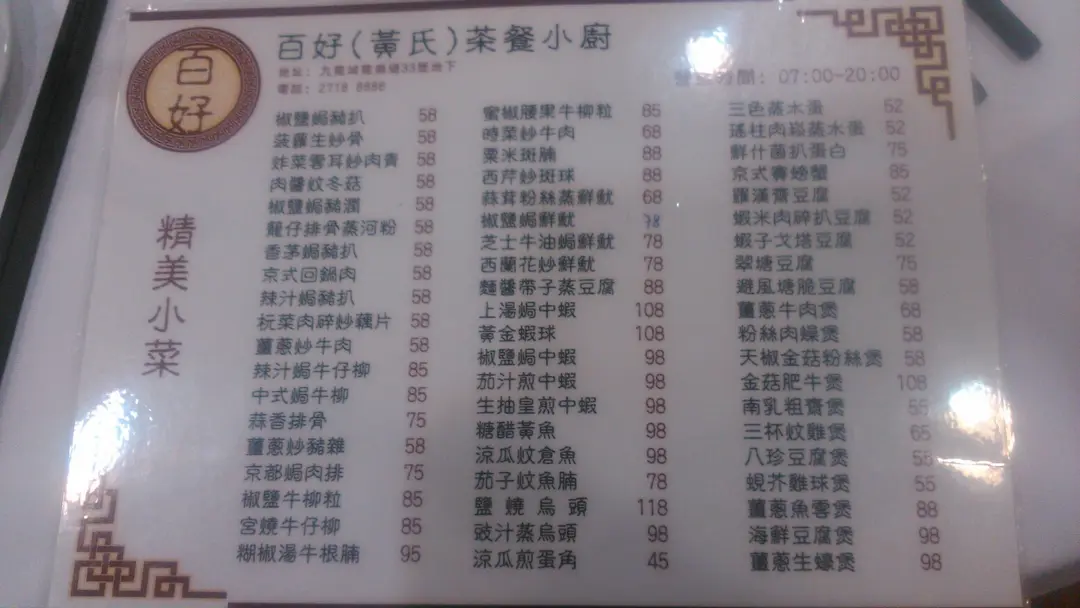 百好
百好(黃氏)茶餐小廚
地址: 九龍城龍崗道33號地下
電話: 2718
時間: 07:00-20:00
精美小菜
椒鹽焗豬扒 58
菠蘿生炒骨 58
炸菜雲耳炒肉青 58
肉醬炆冬菇 58
椒鹽焗豬潤 58
籠仔排骨蒸河粉 58
香茅焗豬扒 58
京式回鍋肉 58
辣汁焗豬扒 58
杬菜肉碎炒藕片 58
薑蔥炒牛肉 58
辣汁焗牛仔柳 85
中式焗牛柳 85
蒜香排骨 75
薑蔥炒豬雜 58
京都焗肉排 75
椒鹽牛柳粒 85
宮燒牛仔柳 85
糊椒湯牛根腩 95
蜜椒腰果牛柳粒 85
時菜炒牛肉 68
粟米斑腩 88
西芹炒斑球 88
蒜茸粉絲蒸鮮魷 68
椒鹽焗鮮魷 78
芝士牛油焗鮮魷 78
西蘭花炒鮮魷 78
麵醬帶子蒸豆腐 88
上湯焗中蝦 108
黃金蝦球 108
椒鹽焗中蝦 98
茄汁煎中蝦 98
生抽皇煎中蝦 98
糖醋黃魚 98
涼瓜炆倉魚 98
茄子炆魚腩 78
鹽燒烏頭 118
豉汁蒸烏頭 98
涼瓜煎蛋角 45
三色蒸水蛋 52
瑤柱肉崧蒸水蛋 52
鮮什菌扒蛋白 75
京式賽螃蟹 85
羅漢齋豆腐 52
蝦米肉碎扒豆腐 52
蝦子戈塔豆腐 52
翠塘豆腐 75
避風塘脆豆腐 58
薑蔥牛肉煲 68
粉絲肉燥煲 58
天椒金菇粉絲煲 58
金菇肥牛煲 108
南乳粗齋煲 55
三杯炆雞煲 65
八珍豆腐煲 58
蜆芥雞球煲 55
薑蔥魚雲煲 88
海鮮豆腐煲 98
薑蔥生蠔煲 98